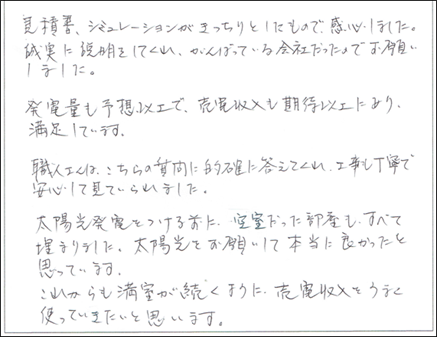 見積書、シミュレーションがきっちりとしたもので、感心しました。
誠実に説明をしてくれ、がんばっている会社だったのでお願い
しました。
発電量も予想以上で、売電収入も期待以上になり、
満足しています。
職人さんは、こちらの質問に的確に答えてくれ、工事も丁寧で
安心して見ていられました。
太陽光発電をつける前に、空室だった部屋も、すべて
埋まりました。太陽光をお願いして本当に良かったと
思っています。
これからも満室が続くように、売電収入をうまく
使っていきたいと思います。